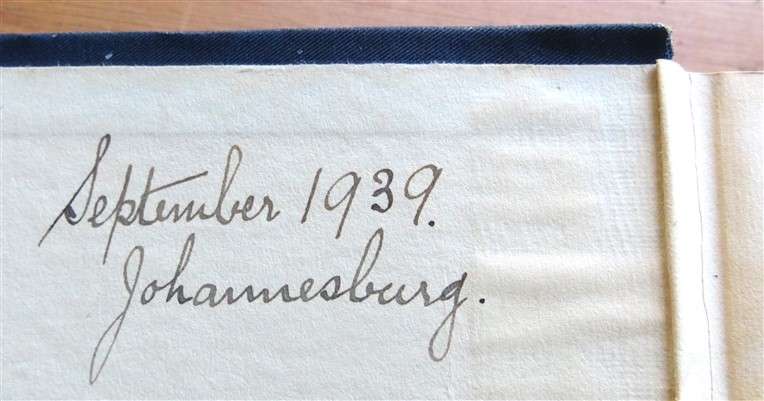 September 1939.
Johannesburg.